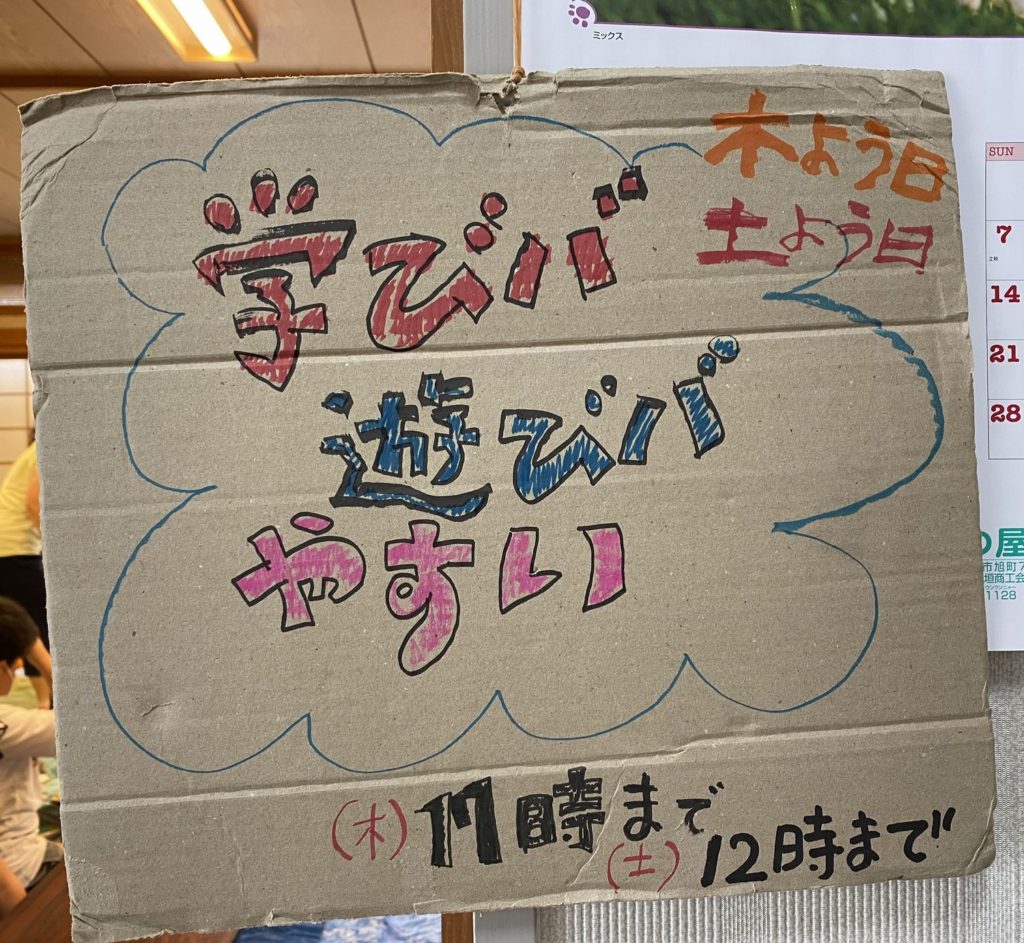 ミックス
木よう日
土よう日
学びバ
遊びバ
やすい
(木) 17時まで
(土) 12時まで
SUN
7
立秋
14
21
28
屋
市旭町7
垣商工会
1128